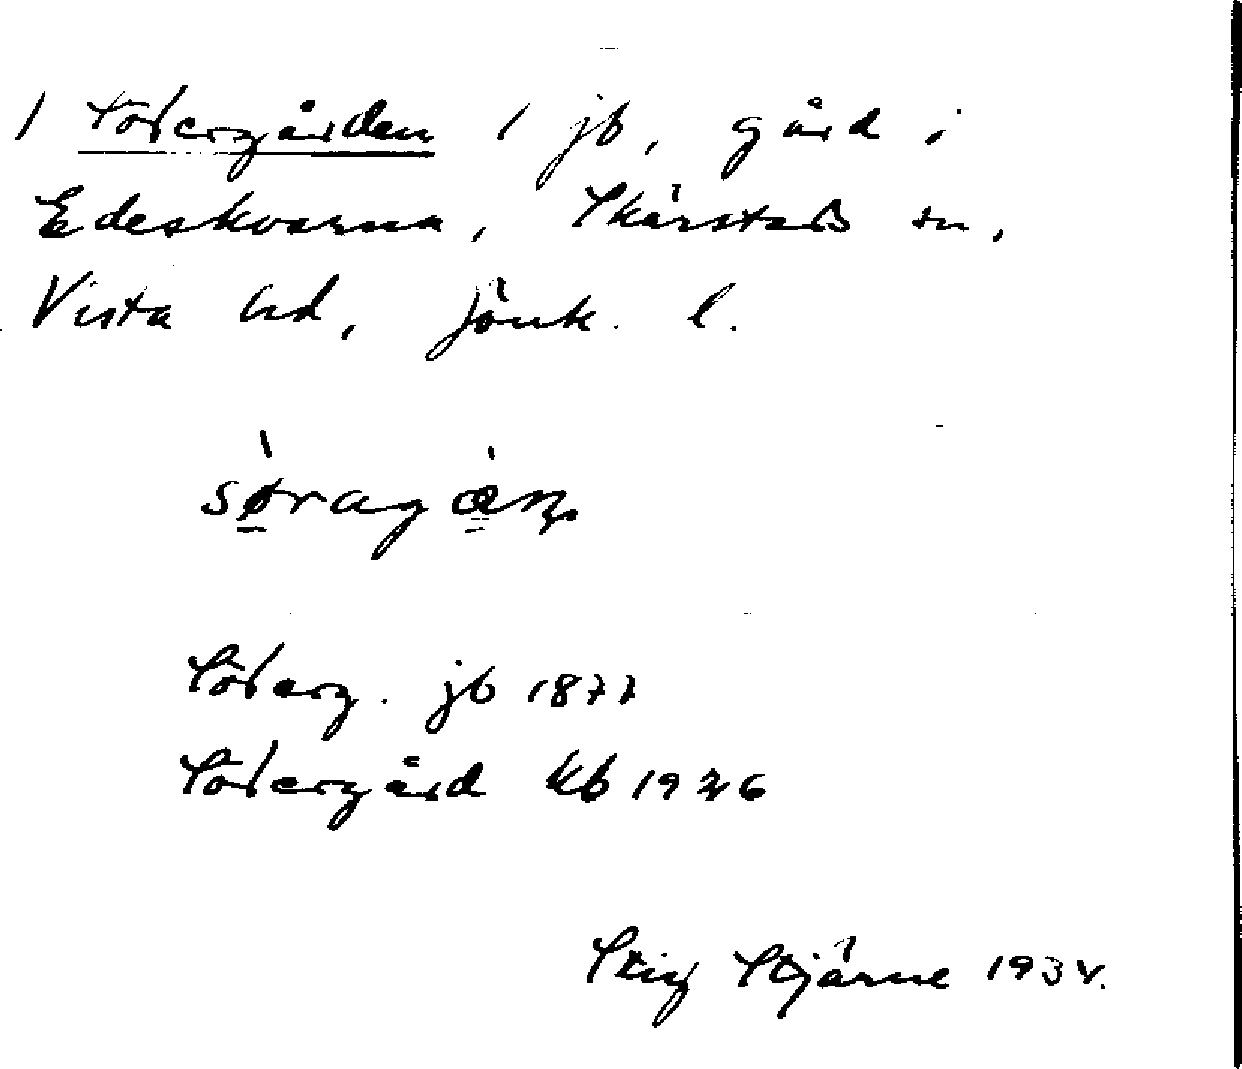 / Södergården 1 jb, gård i
Edeskvarna, Skärstads sn,
Vista hd, Jönk. l.
sø̱̀ragɑ̱̀ṇ
Söderg. jb 1877
Södergård kb 1926
Stig Stjärne 1934.